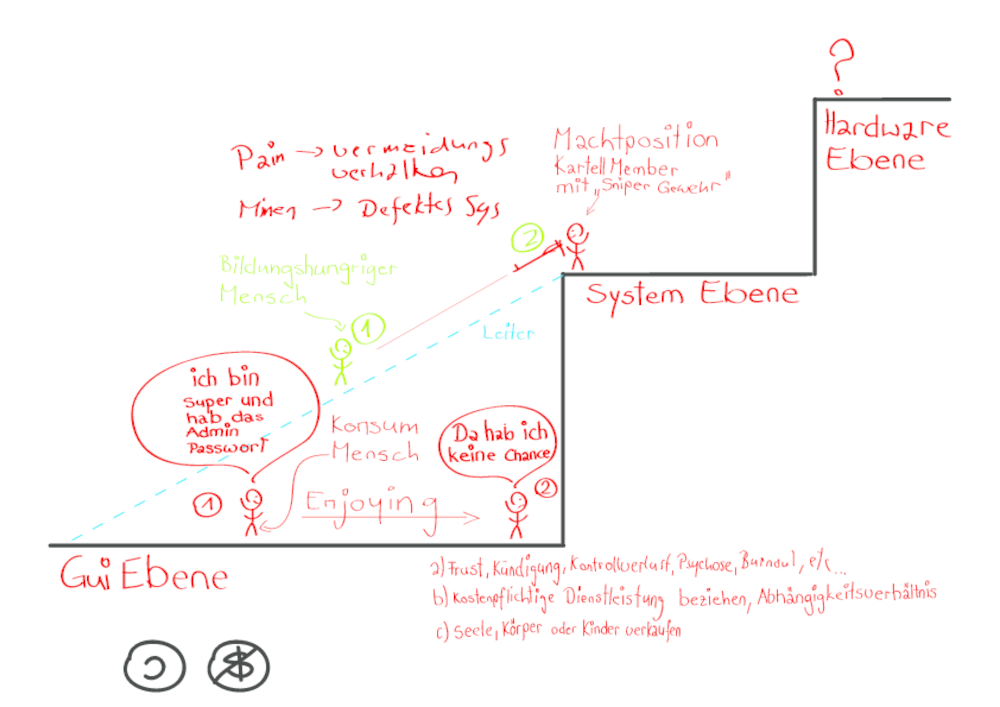 ?
Hardware
Ebene
Pain -> vermeidungs
verhalten
Minen -> Defektes Sys
Machtposition
Kartell Member
mit „Sniper Gewehr"
2
System Ebene
Bildungshungriger
Mensch
1
Leiter
ich bin
Super und
hab das
Admin
Passwort
Konsum
Mensch
Da hab ich
keine Chance
1
Enjoying
2
Gui Ebene
a) Frust, Kündigung, Kontrollverlust, Psychose, Burnout, etc...
b) Kostenpflichtige Dienstleistung beziehen, Abhängigkeitsverhältnis
c) Seele, Körper oder Kinder verkaufen